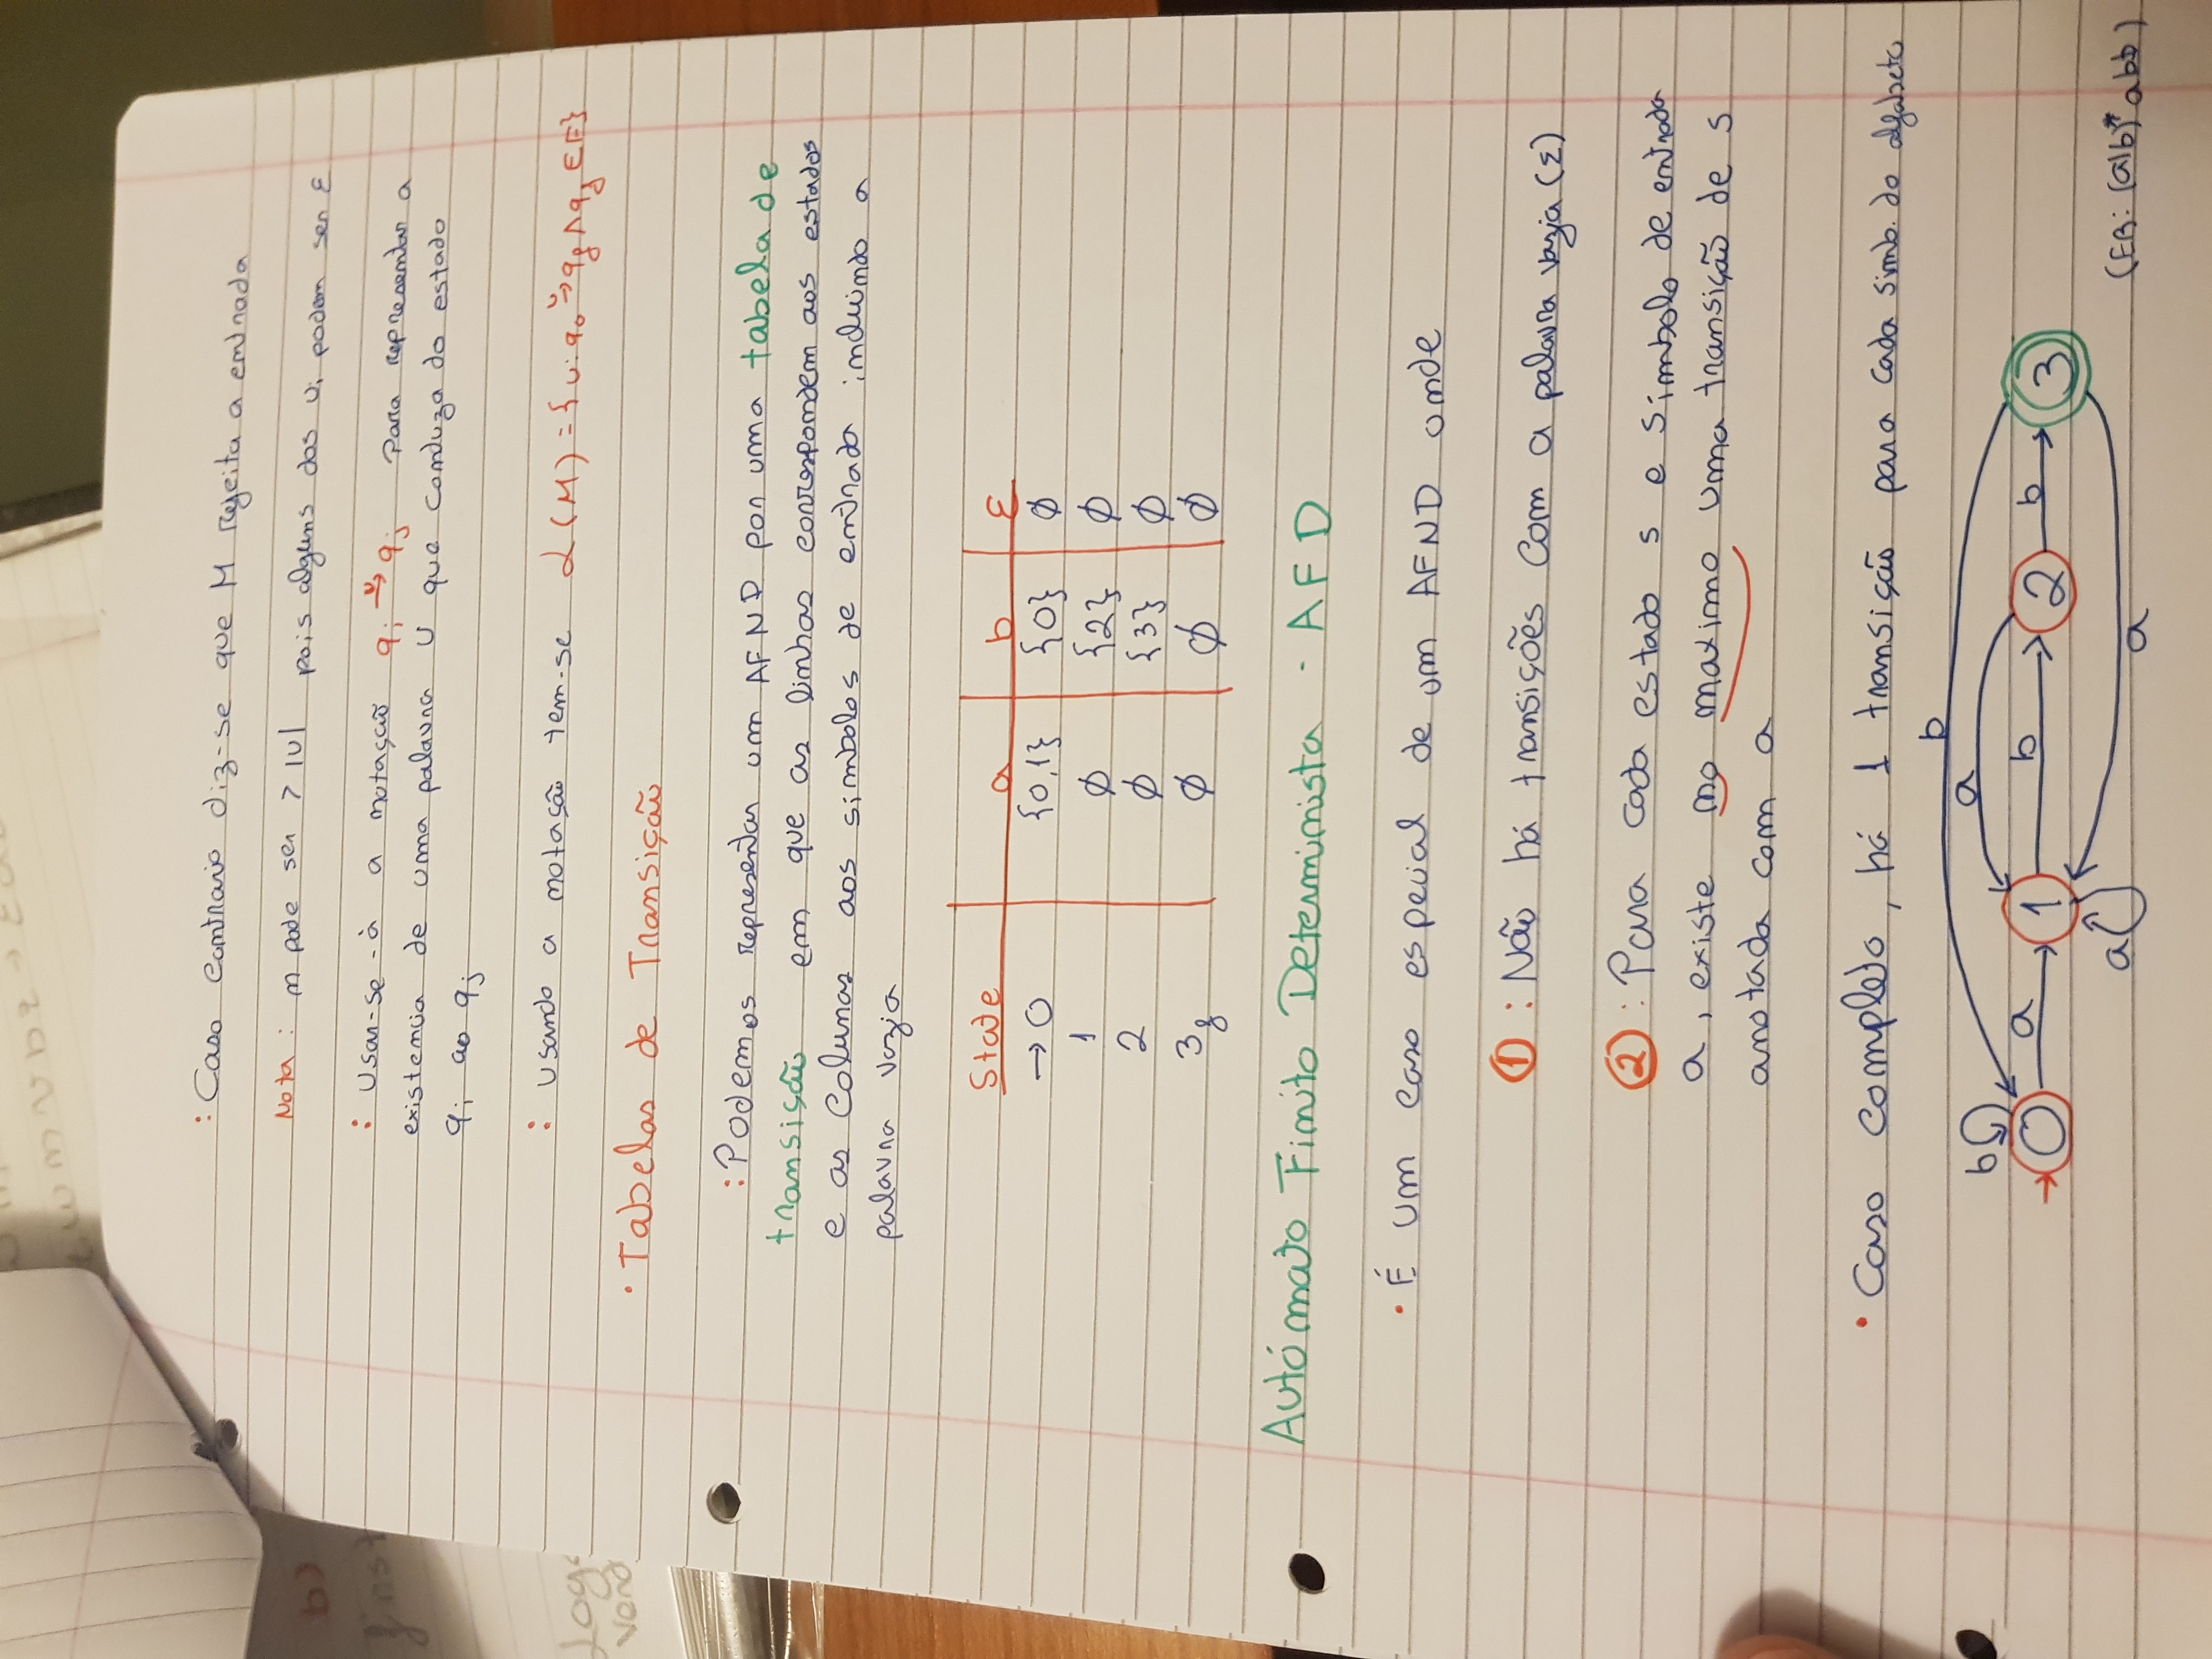 : Caso contrario diz-se que M rejeita a entrada
Nota : n pode ser > |U| pois alguns dos Ui podem ser ε
: Usar-se-à a notação qi →ᵘ qj para representar a
existencia de uma palavra U que conduza do estado
qi ao qj
: usando a notação tem-se L(M) = {u: q0 →ᵘ qf ∧ qf ∈ F}
• Tabelas de Transição
: Podemos representar um AFND por uma tabela de
transição em que as linhas correspondem aos estados
e as colunas aos simbolos de entrada incluindo a
palavra vazia
State a b ε
→ 0 {0,1} {0} ∅
1 ∅ {2} ∅
2 ∅ {3} ∅
3f ∅ ∅ ∅
Autómato Finito Determinista - AFD
• É um caso especial de um AFND onde
① : Não há transições com a palavra vazia (Σ)
② : Para cada estado s e simbolo de entrada
a, existe no maximo uma transição de s
anotada com a
• Caso completo, há 1 transição para cada simb. do alfabeto
b
b a
0 a 1 b 2 b 3
a a
(ER: (a|b)* abb)
b)